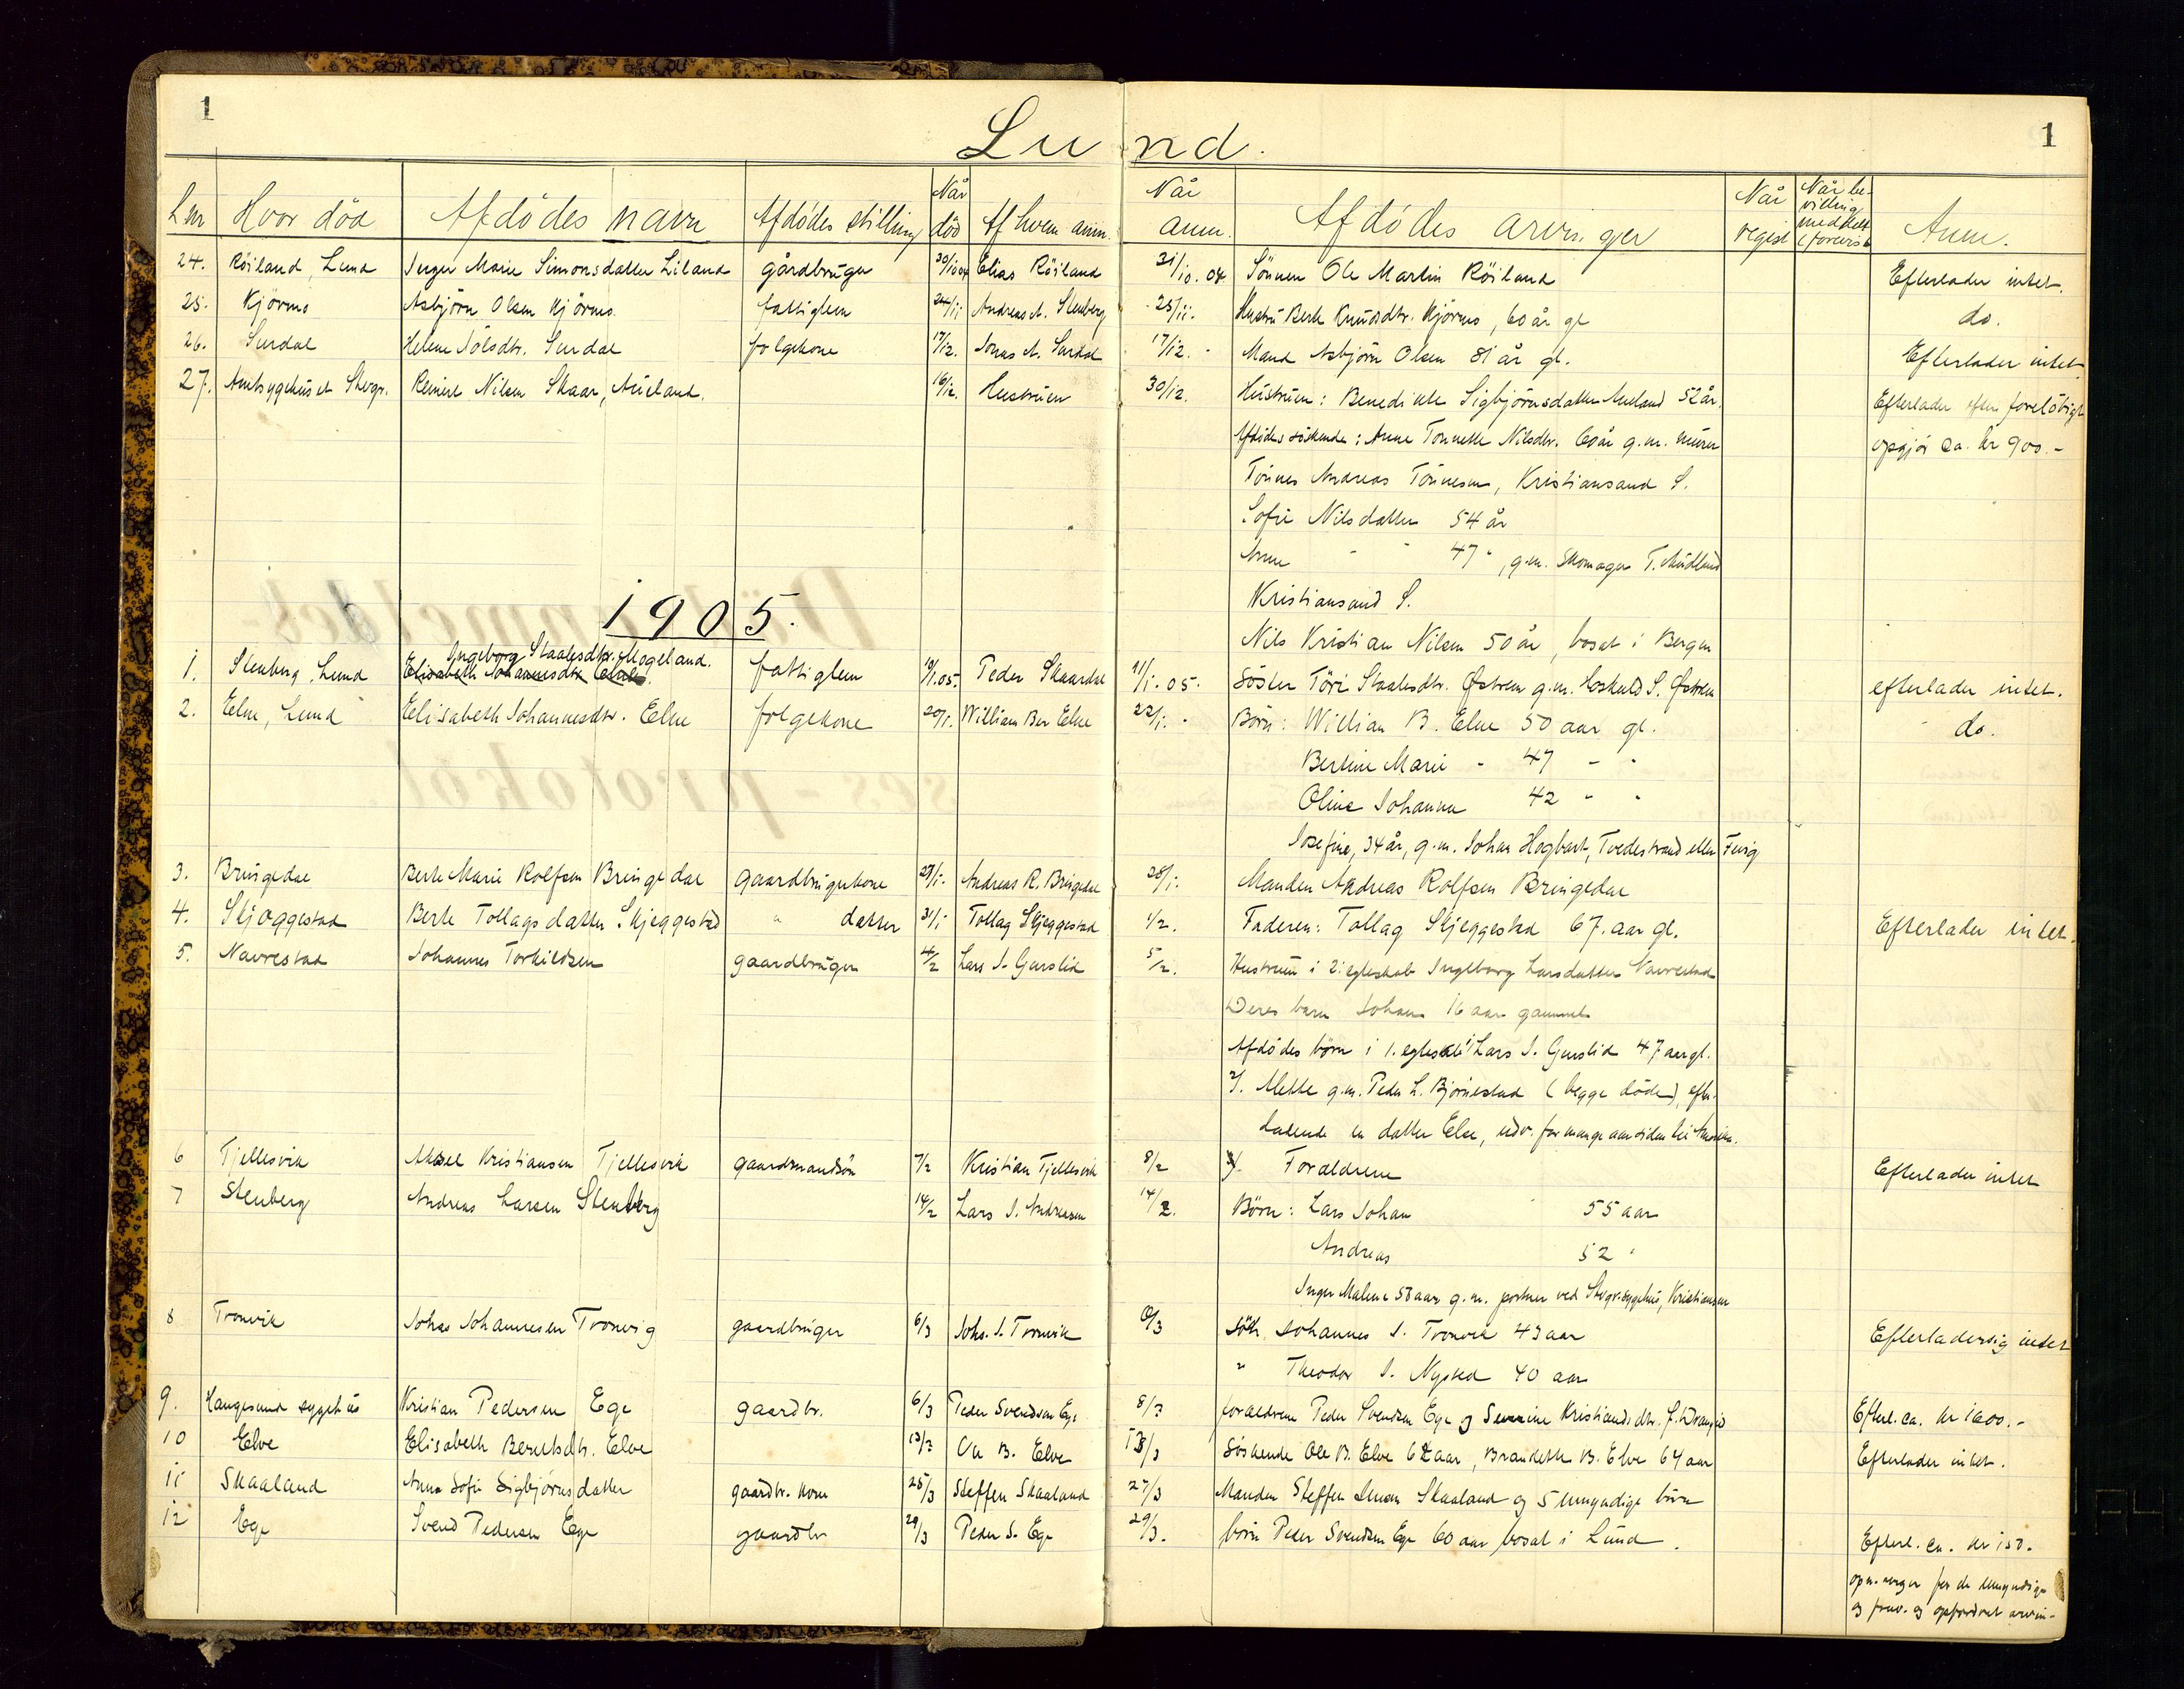 1
Lund.
1
Lnr Hvor död Afdödes navn Afdödes stilling Når död Af hvem anm. Når anm. Afdödes arvinger Når regist Når bevilling meddelt Anm.
24. Röiland, Lund Inger Marie Simonsdatter Liland gårdbruger 30/10 04 Elias Röiland 31/10. 04. Sönnen Ole Martin Röiland Efterlader intet.
25. Kjörmo Asbjörn Olsen Kjörmo. fattiglem 24/11 Andreas A. Stenberg 25/11. Hustru Berte Knudsdtr. Kjörmo, 60 år gl do.
26. Surdal Helene Tolsdtr. Surdal folgekone 17/12. Jonas A. Surdal 17/12. - Mand Asbjörn Olsen 81 år gl. Efterlader intet.
27. Amtsygehuset Stvgr. Reinert Nilsen Skaar, Aueland. 16/12. Hustruen 30/12. Hustruen: Benedikte Sigbjörnsdatter Aueland 52 år. Efterlader efter forelöbigt
Afdödes söskende: Anne Tonnette Nilsdtr. 60 år g.m. murer opgjör ca. kr 900.-
Tönnes Andreas Tönnesen, Kristiansand S.
Sofie Nilsdatter 54 år
Anne - - 47 - , g.m. skomager T.
Kristiansand S.
1905.
Nils Kristian Nilsen 50 år, bosat i Bergen
Ingeborg Staalesdtr. Mogeland.
1. Stenberg, Lund Elisabeth Johannesdtr Elve. fattiglem 10/1.05. Peder Skaardal 11/1. 05. Söster Töri Staalesdtr. Østrem g.m. Hoskuld S. Østrem efterlader intet.
2. Elve, Lund Elisabeth Johannesdtr. Elve folgekone 20/1. William Ber Elve 22/1. - Börn: William B. Elve 50 aar gl. do.
Bertine Marie - 47 - -
Oline Johanna 42 - -
Josefine, 34 år, g.m. Johan Hogbart, Tvedestrand eller
3. Bringedal Berte Marie Rolfsen Bringedal gaardbrugerkone 27/1. Andreas R. Bringedal 28/1. Manden Andreas Rolfsen Bringedal
4. Skjæggestad Berte Tollagsdatter Skjeggestad " datter 31/1 Tollag Skjeggestad 1/2. Faderen: Tollag Skjeggestad 67. aar gl. Efterlader intet.
5. Navrestad Johannes Torkildsen gaardbruger 4/2 Lars J. Gurslid 5/2. Hustruen i 2. egteskab Ingeborg Larsdatter Navrestad
Deres barn Johan 16 aar gammel
Afdödes börn i 1. egteskab 1/ Lars J. Gurslid 47 aar gl.
2/. Mette g.m. Peder L. Björnestad (begge döde), efter-
ladende en datter Else, udv. for mange aar siden til Amerika.
6 Tjellesvik Aksel Kristiansen Tjellesvik gaardmandsön 7/2 Kristian Tjellesvik 8/2 3/. Forældrene Efterlader intet
7 Stenberg Andreas Larsen Stenberg 14/2 Lars J. Andreasen 14/2. Börn: Lars Johan 55 aar
Andreas 52 "
Inger Malene 58 aar g.m. portner ved Stvgr. sygehus, Kristiansen
8 Tronvik Johas Johannesen Tronvig gaardbruger 6/3 Johs. J. Tronvik 6/3 Sön Johannes J. Tronvik 43 aar Efterlader sig intet
" Theodor J. Nysted 40 aar
9. Haugesund sygehus Kristian Pedersen Ege gaardbr. 6/3 Peder Svendsen Ege 8/3 forældrene Peder Svendsen Ege og Severine Kristiansdtr. Efterl. ca. kr 1600.-
10 Elve Elisabeth Berentsdtr. Elve 13/3 Ole B. Elve 13/3 Söskende Ole B. Elve 62 aar, B. Elve 64 aar Efterlader intet.
11 Skaaland Anna Sofie Sigbjörnsdatter gaardbr. kone 25/3 Steffen Skaaland 27/3 Manden Steffen Skaaland og 5 umyndige börn
12 Ege Svend Pedersen Ege gaardbr 29/3 Peder S. Ege 29/3. börn Peder Svendsen Ege 60 aar bosat i Lund. Efterl. ca. kr 150.
opn. verger for de umyndige
og opfordret arvin-